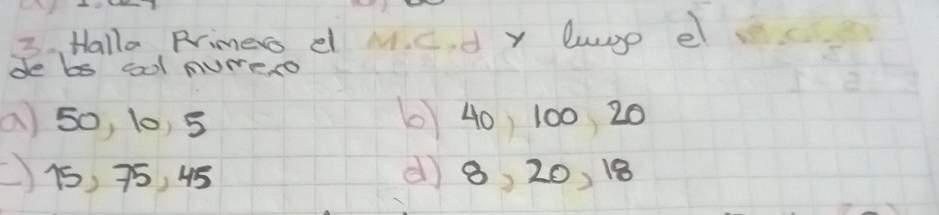 3. Halla Primero el M.C.d y luego el m.c.m.
de los sol numero
a) 50, 10, 5 b) 40, 100, 20
c) 15, 75, 45 d) 8, 20, 18